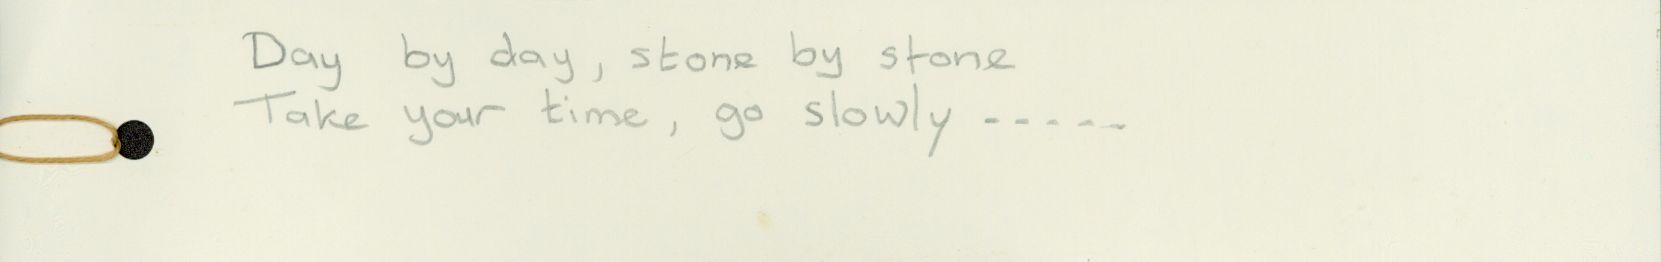 Day by day, stone by stone
Take your time, go slowly -----